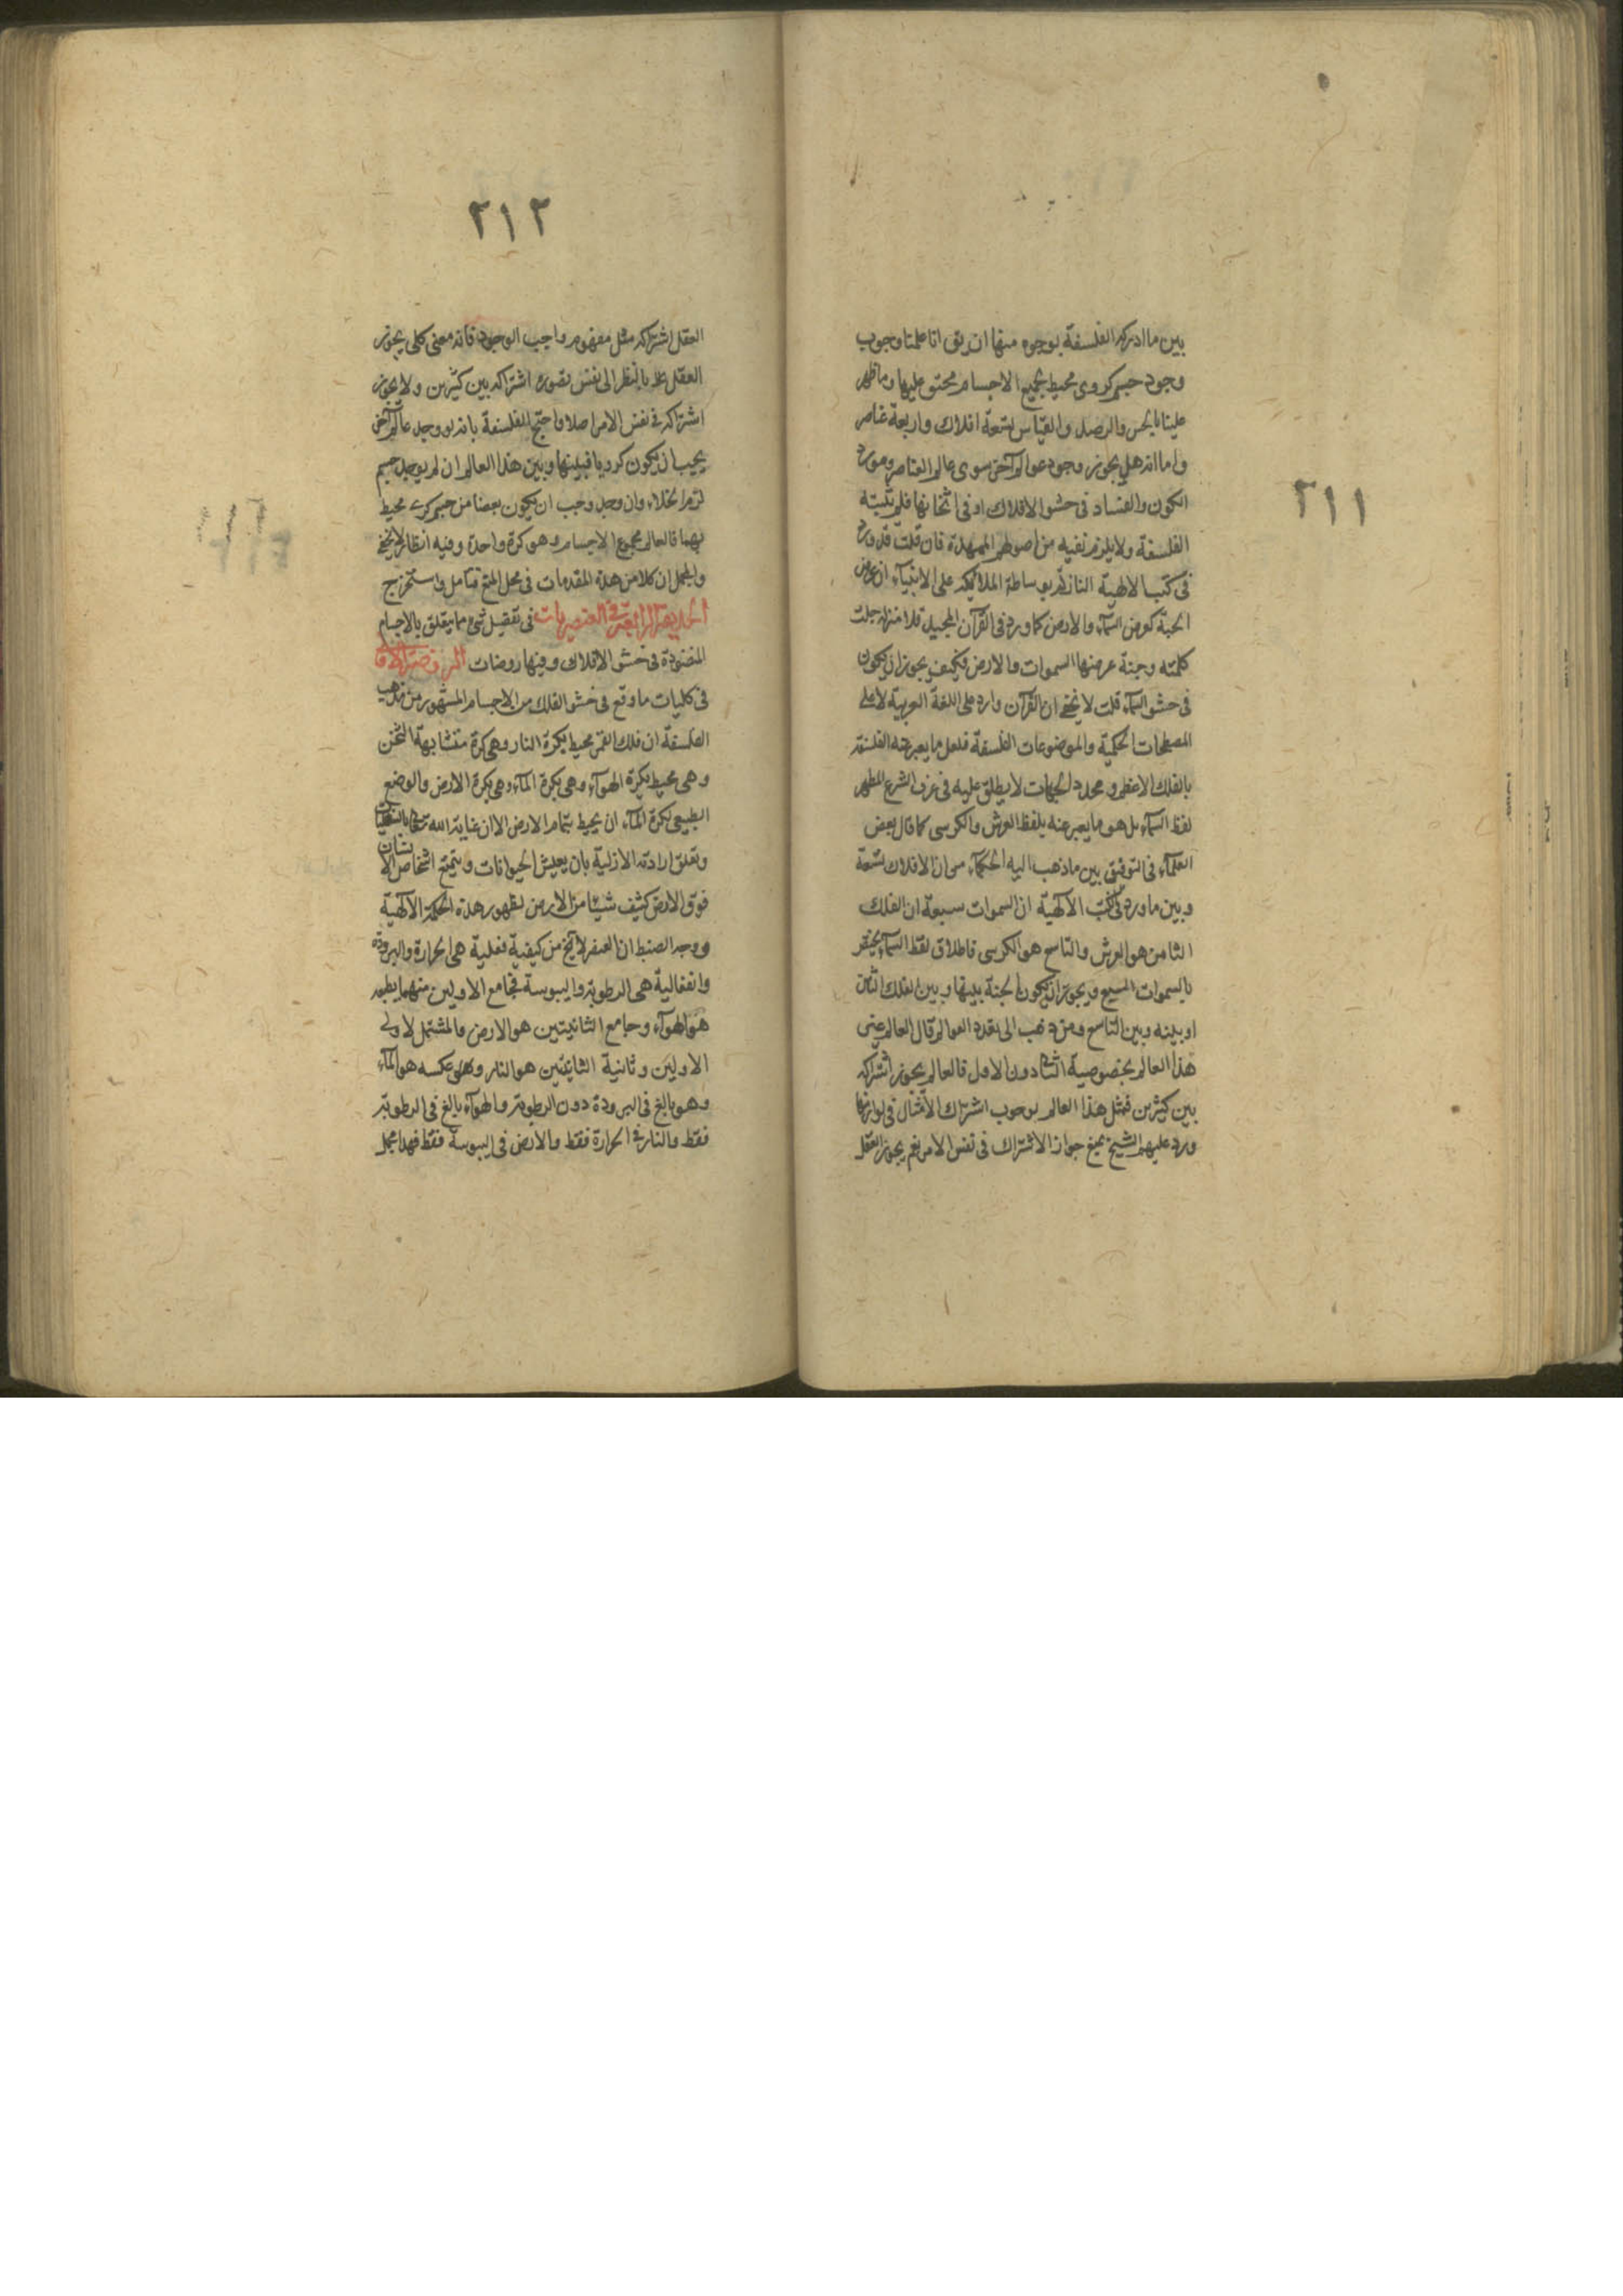 ٢١١
بين ما ادركه الفلسفة بوجوه منها ان يق انا علمنا وجوب
وجود جسم كروى محيط بجميع الاجسام محتو عليها وما ظهر
علينا بالحس والرصد والقياس تسعة افلاك واربعة عناصر
واما انه هل يجوز وجود عوالم آخر سوى عالم العناصر ومورد
الكون والفساد فى حشو الافلاك او فى اثخانها فلم تثبته
الفلسفة ولا يلزم نفيه من اصولهم الممهدة فان قلت قد ورد
فى كتب الالهية النازلة بوساطة الملائكة على الانبياء ان عرض
الجنة كعرض السماء والارض كما ورد فى القرآن المجيد جلت
كلمته وجنة عرضها السموات والارض فكيف يجوز ان يكون
فى حشو السماء قلت لا يخفى ان القرآن وارد على اللغة العربية لا على
المصطلحات الحكمية والموضوعات الفلسفة فلعل ما يعبر عنه الفلسفة
بالفلك الاعظم ومحدد الجهات لا يطلق عليه فى عرف الشرع المطهر
لفظ السماء بل هو ما يعبر عنه بلفظ العرش والكرسى كما قال بعض
العلماء فى التوفيق بين ما ذهب اليه الحكماء من ان الافلاك تسعة
وبين ما ورد فى الكتب الآلهية ان السموات سبعة ان الفلك
الثامن هو العرش والتاسع هو الكرسى فاطلاق لفظ السماء يختص
بالسموات السبع ويجوز ان يكون الجنة بينها وبين الفلك الثامن
او بينه وبين التاسع ومن ذهب الى تعدد العوالم قال العالم غير
هذا العالم بخصوصية الثانى دون الاول فالعالم يجوز اشتراكه
بين كثيرين فمثل هذا العالم لوجوب اشتراك الامثال فى لوازمها
ورد عليهم الشيخ بمنع جواز الاشتراك فى نفس الامر نعم يجوز العقل
٢١٢
العقل اشتراكه مثل مفهوم واجب الوجود فانه معنى كلى يجوز
العقل بالنظر الى نفس تصوره اشتراكه بين كثيرين ولا يجوز
اشتراكه فى نفس الامر اصلا واحتج الفلسفة بانه لو وجد عالم آخر
يجب ان يكون كرويا فبينها وبين هذا العالم ان لم يوجد جسم
لزم الخلاء وان وجد وجب ان يكون بعضا من جسم كرى محيط
بهما فالعالم مجموع الاجسام وهو كرة واحدة وفيه انظار لا يخفى
والمجمل ان كلا من هذه المقدمات فى محل المنع فتامل واستخرج
الحديقة الرابعة فى العنصريات فى تفصيل شئ مما يتعلق بالاجسام
المنضودة فى حشو الافلاك وفيها روضات الروضة الاولى
فى كليات ما وقع فى حشو الفلك من الاجسام المشهور من مذهب
الفلسفة ان فلك القمر محيط بكرة النار وهى كرة متشابهة الثخن
وهى محيط بكرة الهواء وهى بكرة الماء وهى بكرة الارض والوضع
الطبيعى لكرة الماء ان يحيط بتمام الارض الا ان عناية الله تعالى بالسفليات
وتعلق ارادته الازلية بان يعيش الحيوانات ويتمتع اشخاص الانسان
فوق الارض كشف شيئا من الارض لظهور هذه الحكمة الآلهية
ووجه الضبط ان العنصر لا يخ من كيفية فعلية هى الحرارة والبرودة
وانفعالية هى الرطوبة واليبوسة فجامع الاوليين منهما
هو الهواء وجامع الثانيتين هو الارض والمشتمل لاولى
الاوليين وثانية الثانيتين هو النار وعلى عكسه هو الماء
وهو بالغ فى البرودة دون الرطوبة والهواء بالغ فى الرطوبة
فقط والنار فى الحرارة فقط والارض فى اليبوسة فقط فهذا مجمل